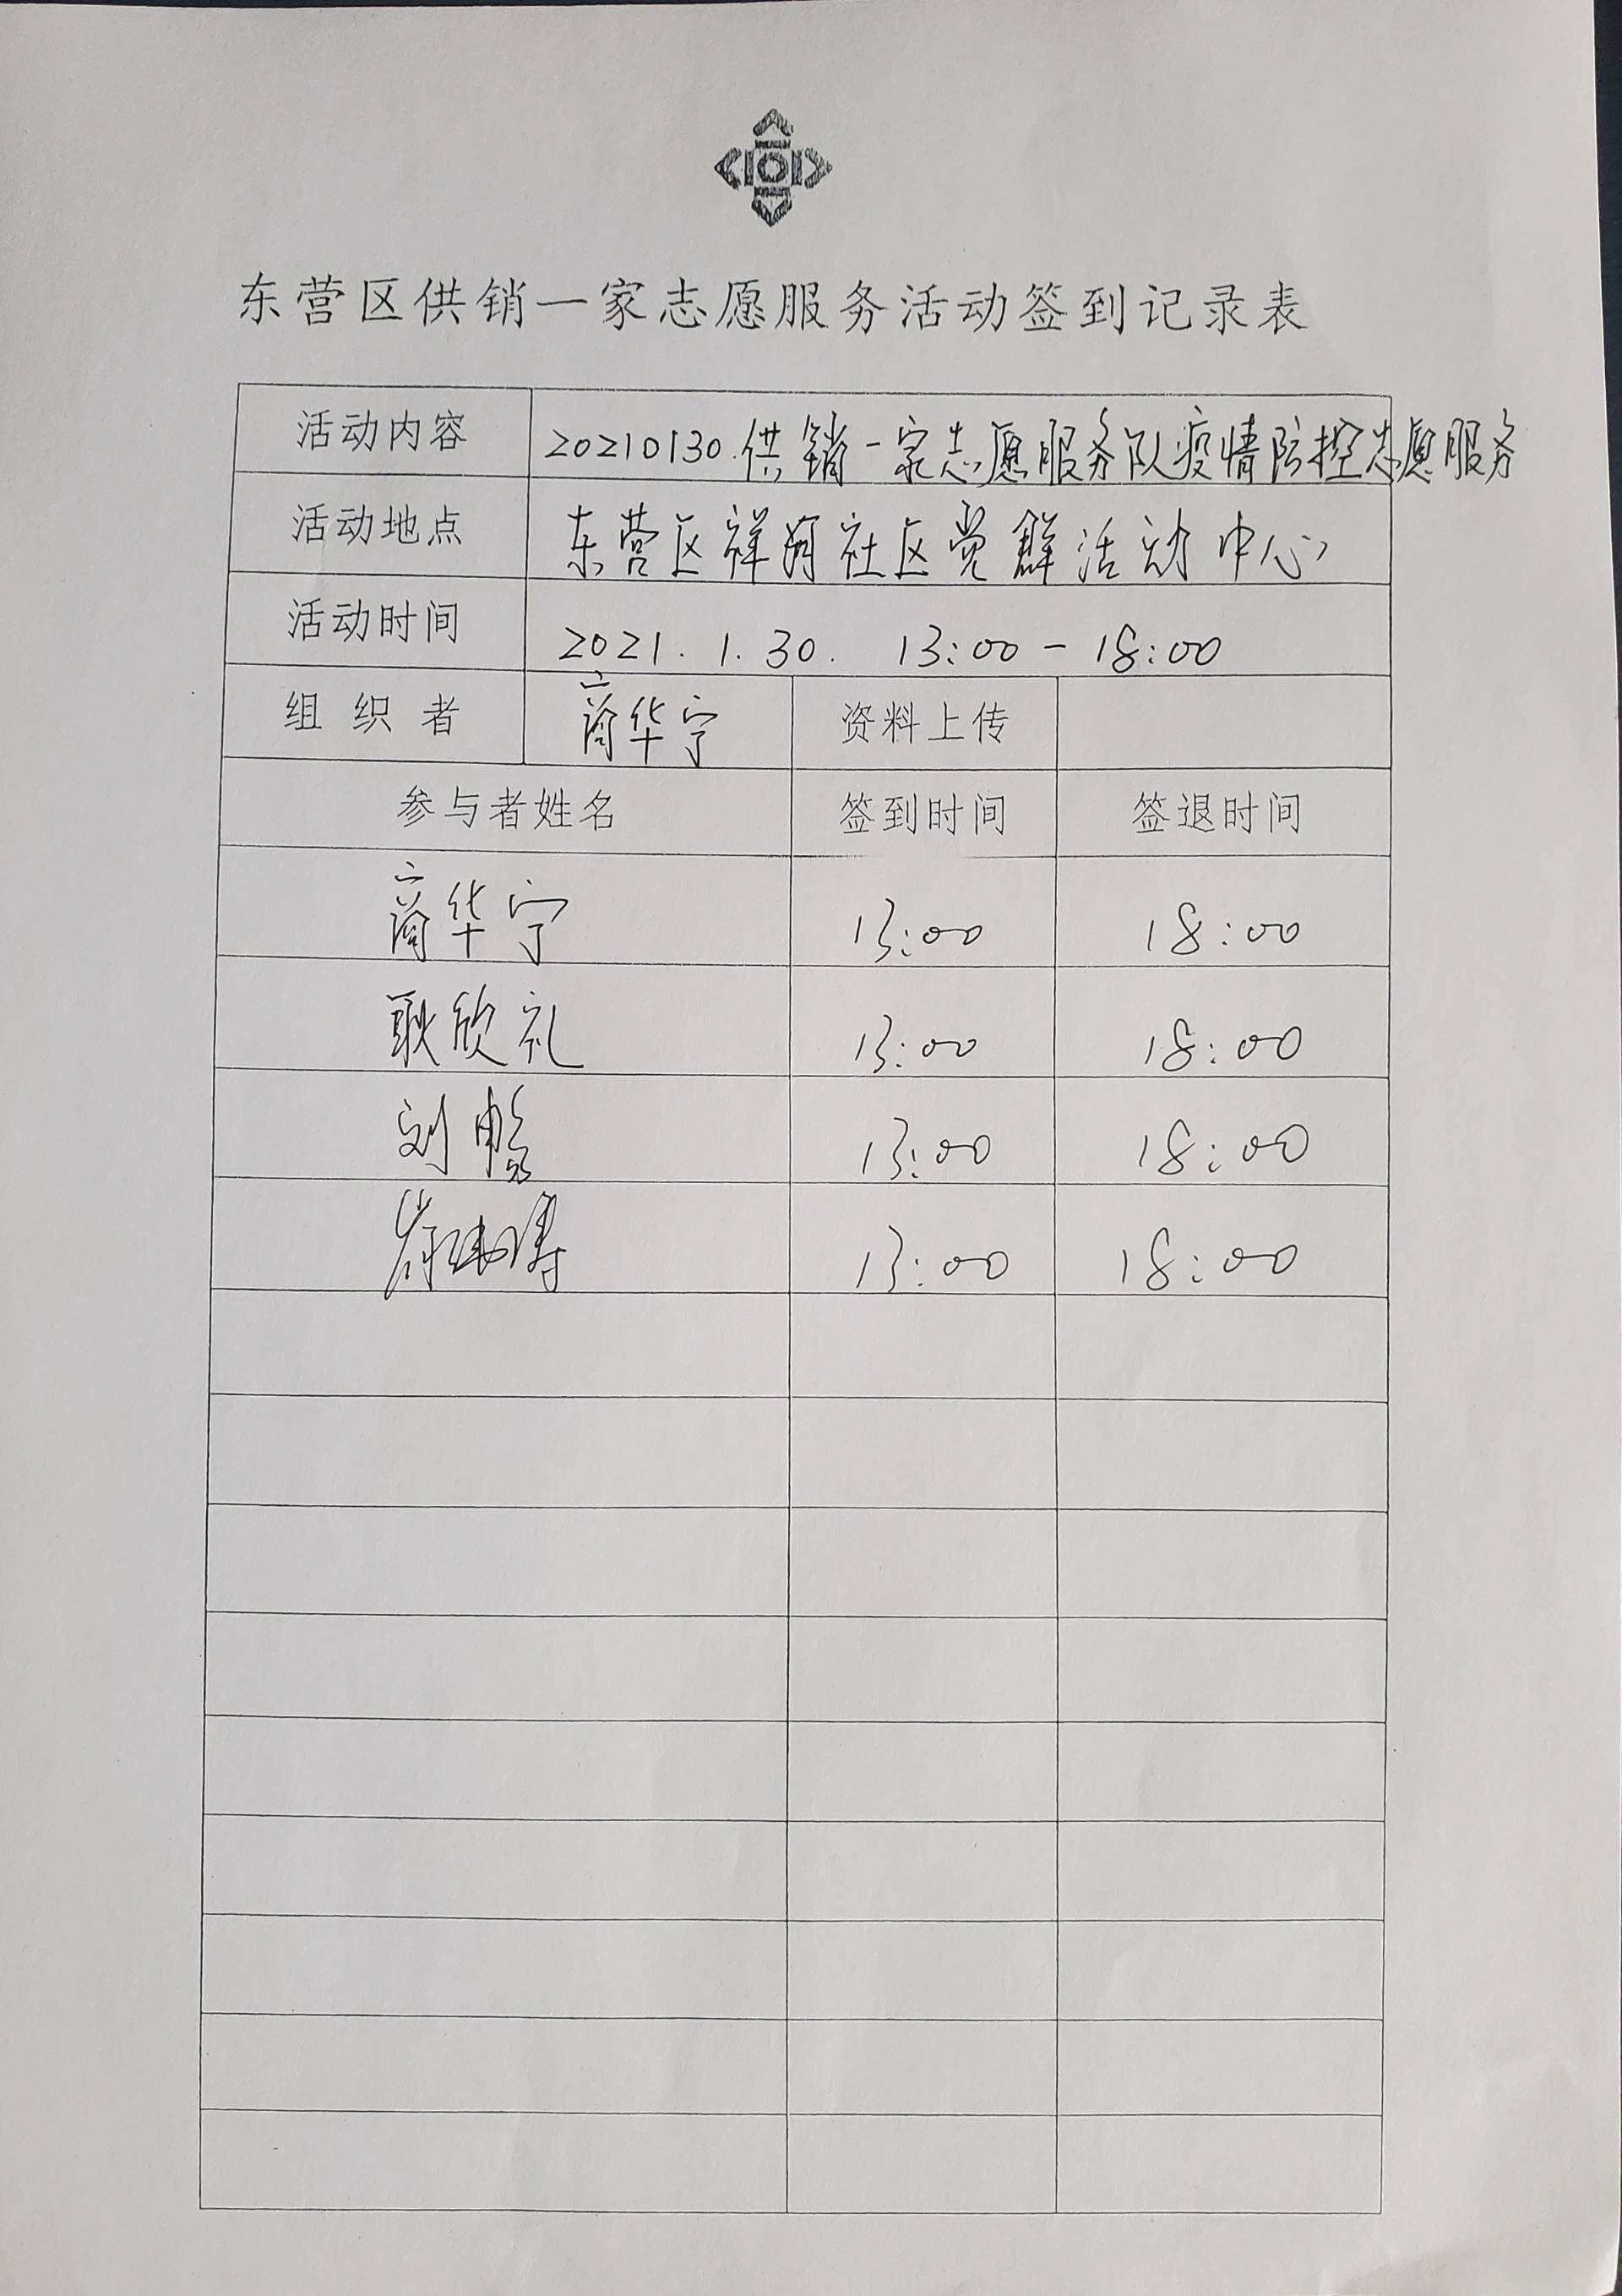 东营区供销一家志愿服务活动签到记录表
活动内容 20210130.供销一家志愿服务队疫情防控志愿服务
活动地点 东营区祥河社区党群活动中心
活动时间 2021.1.30. 13:00-18:00
组织者 商华宁 资料上传
参与者姓名 签到时间 签退时间
商华宁 13:00 18:00
耿欣礼 13:00 18:00
刘 13:00 18:00
13:00 18:00